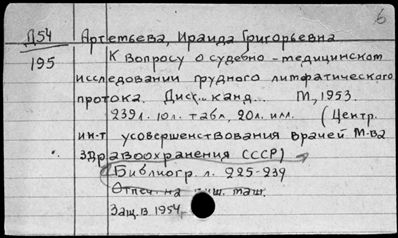 Д54
195
б
Артемьева, Ираида Григорьевна
К вопросу о судебно-медицинском
исследовании грудного лимфатического
протока. Дисс... канд... М, 1953.
239л. 10л. табл, 20л. илл. (Центр.
ин-т усовершенствования врачей М-ва
здравоохранения СССР)
Библиогр. л. 225-239
Отпеч. на пиш. маш.
Защ. в 1954